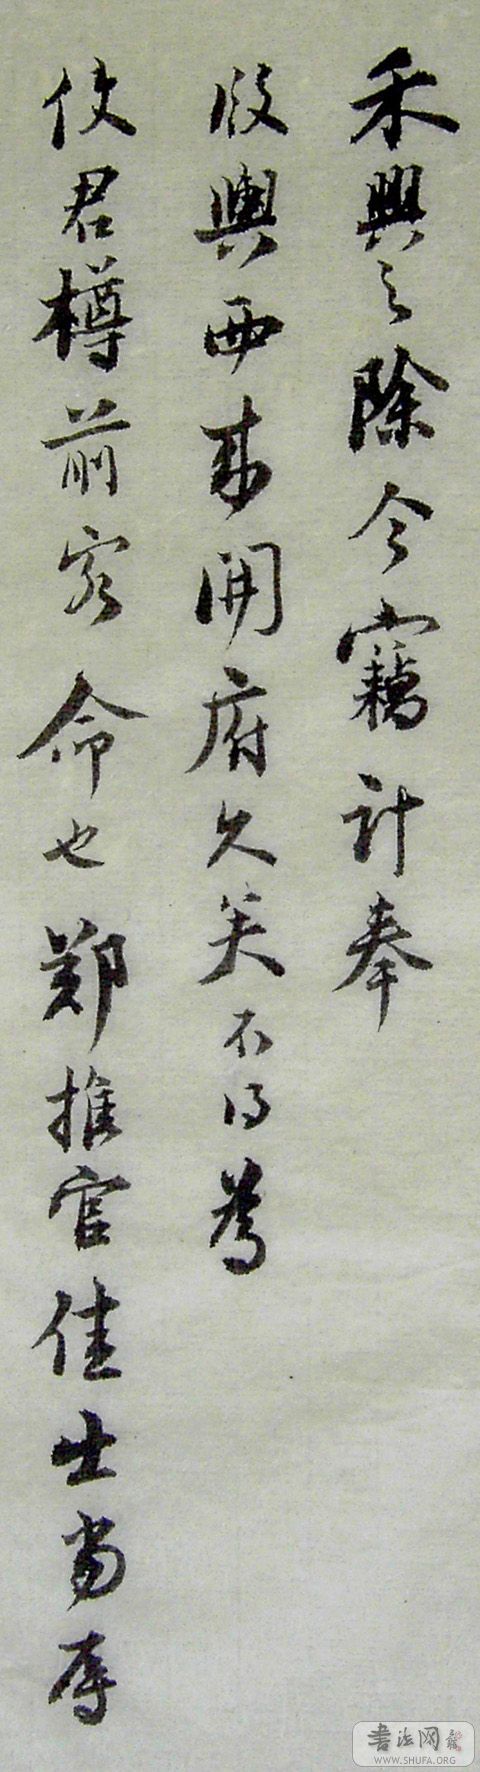 禾興之除今竊計奉
版輿西來開府久矣不得爲
使君樽前客命也鄭推官佳士當辱
書法网
WWW.SHUFA.ORG